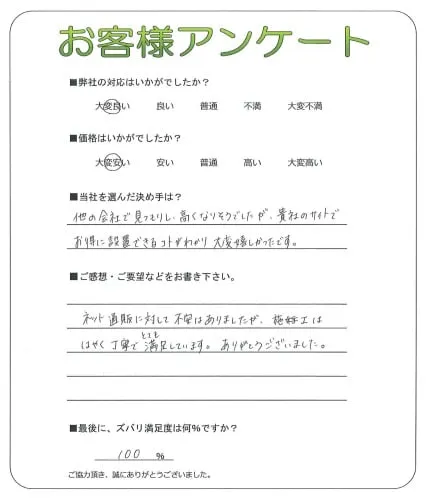 お客様アンケート
■弊社の対応はいかがでしたか？
大変良い 良い 普通 不満 大変不満
■価格はいかがでしたか？
大変安い 安い 普通 高い 大変高い
■当社を選んだ決め手は？
他の会社で見つもりし、高くなりそうでしたが、貴社のサイトで
お得に設置できるコトがわかり大変嬉しかったです。
■ご感想・ご要望などをお書き下さい。
ネット通販に対して不安はありましたが、施工は
とても
はやく丁寧で満足しています。ありがとうございました。
■最後に、ズバリ満足度は何％ですか？
100 %
ご協力頂き、誠にありがとうございました。